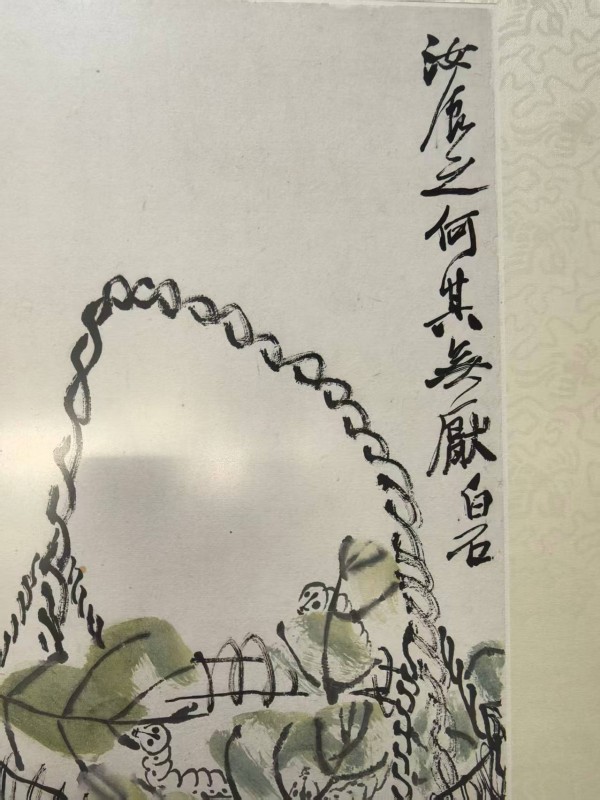 汝食之何其無厭
白石